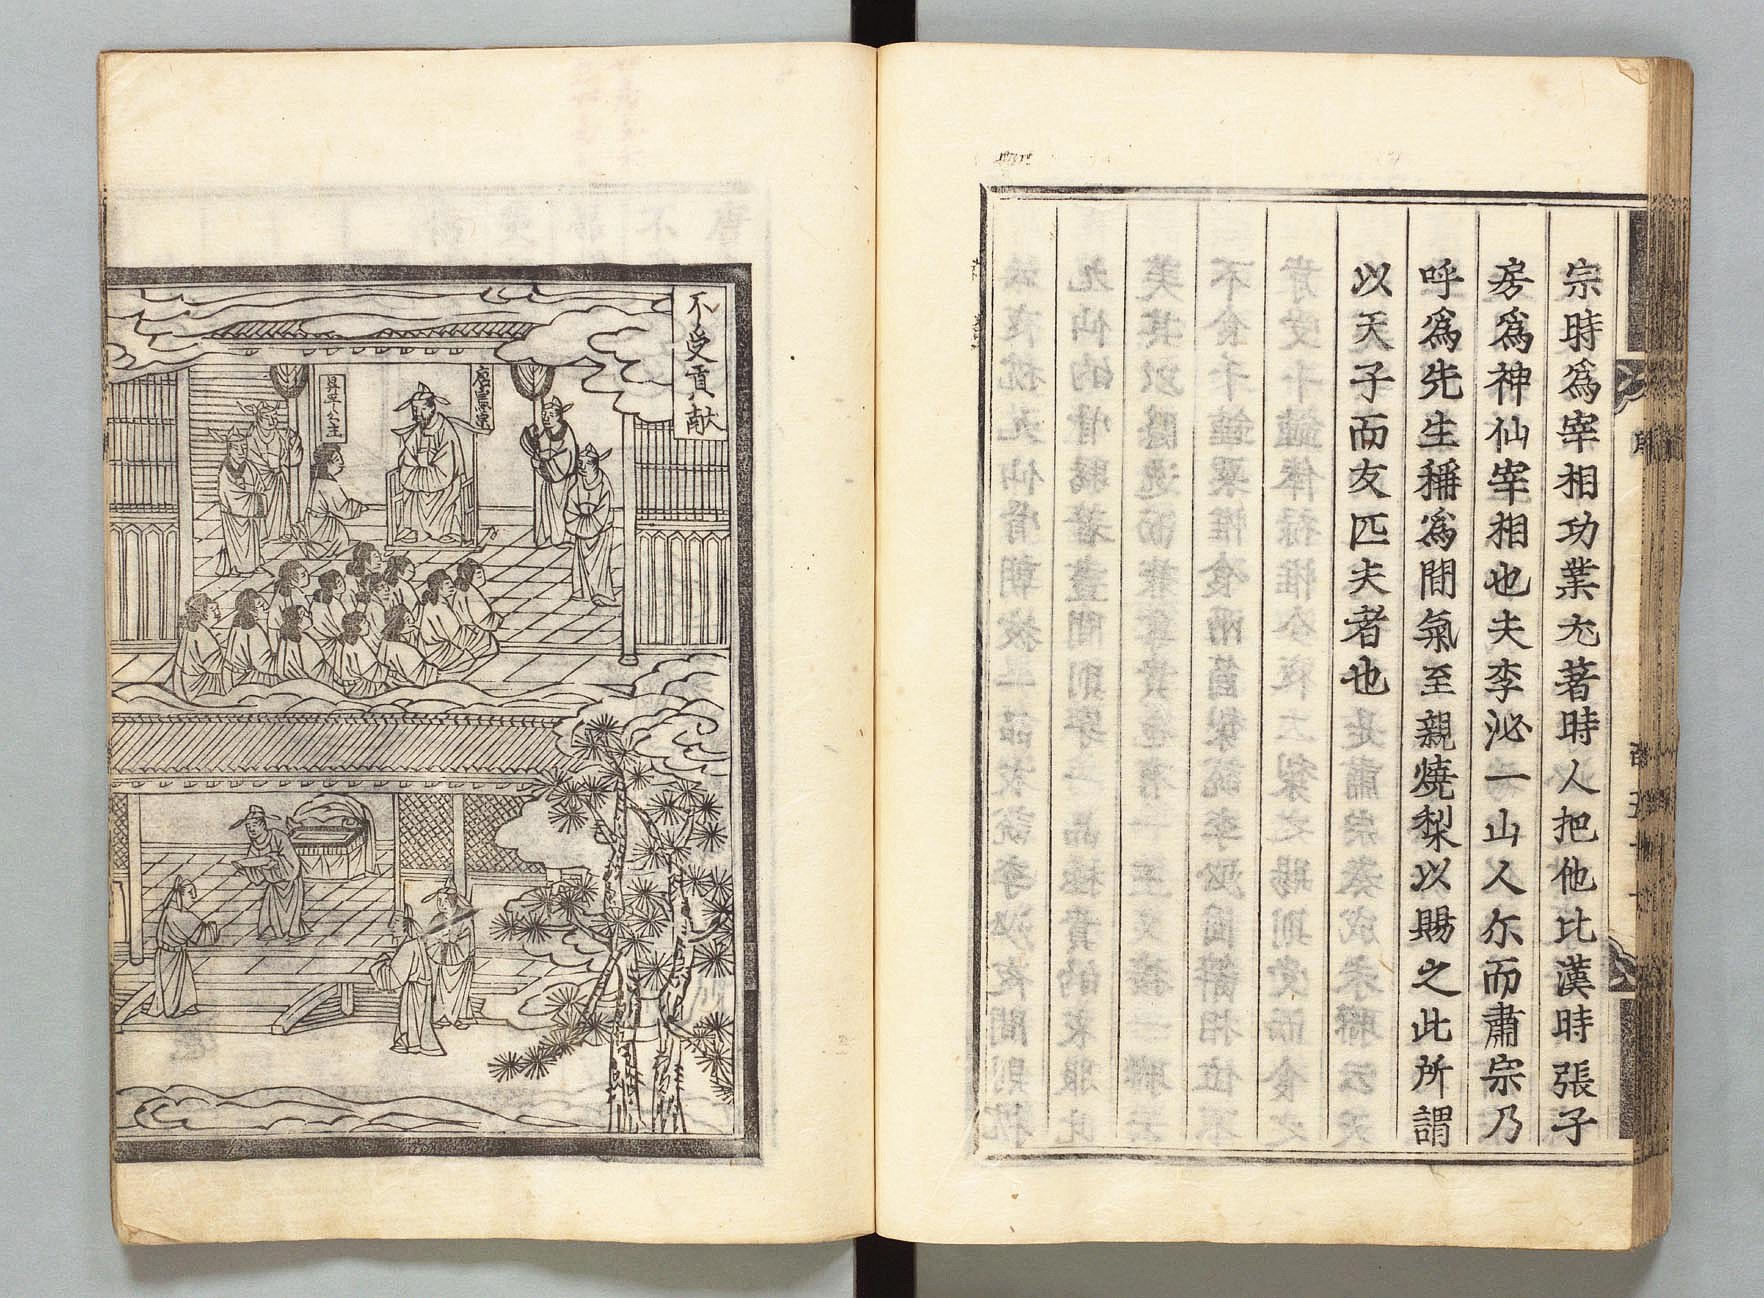 宗時爲宰相功業尤著時人把他比漢時張子
房爲神仙宰相也夫李泌一山人尔而肅宗乃
呼爲先生稱爲間氣至親燒梨以賜之此所謂
以天子而友匹夫者也
不受貢献
唐憲宗
昇平公主